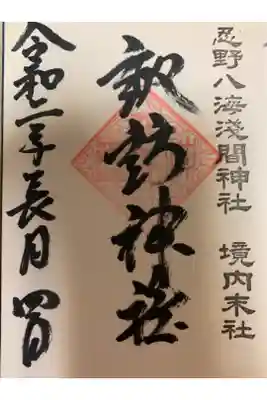 忍野八海淺間神社 境内末社
諏訪神社
令和 年長月 四日